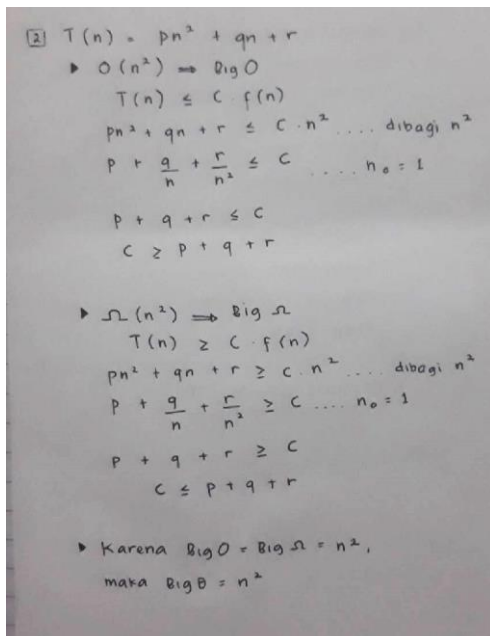 2 T(n) = pn² + qn + r
▸ O(n²) ⇒ Big O
T(n) ≤ C · f(n)
pn² + qn + r ≤ C · n² .... dibagi n²
p + q/n + r/n² ≤ C .... n₀ = 1
p + q + r ≤ C
C ≥ p + q + r
▸ Ω(n²) ⇒ Big Ω
T(n) ≥ C · f(n)
pn² + qn + r ≥ C · n² .... dibagi n²
p + q/n + r/n² ≥ C .... n₀ = 1
p + q + r ≥ C
C ≤ p + q + r
▸ Karena Big O = Big Ω = n²,
maka Big θ = n²